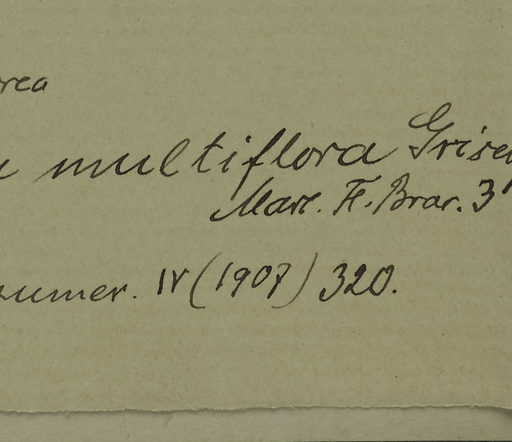 rea
multiflora Grise
Mart. Fl. Bras. 3
numer. IV (1907) 320.